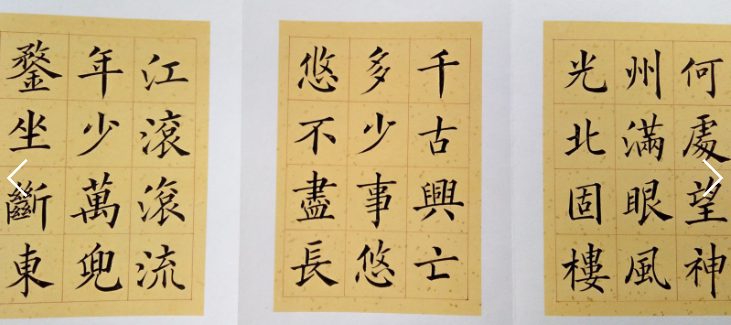 何處望神
州滿眼風
光北固樓
千古興亡
多少事悠
悠不盡長
江滾滾流
年少萬兜
鍪坐斷東